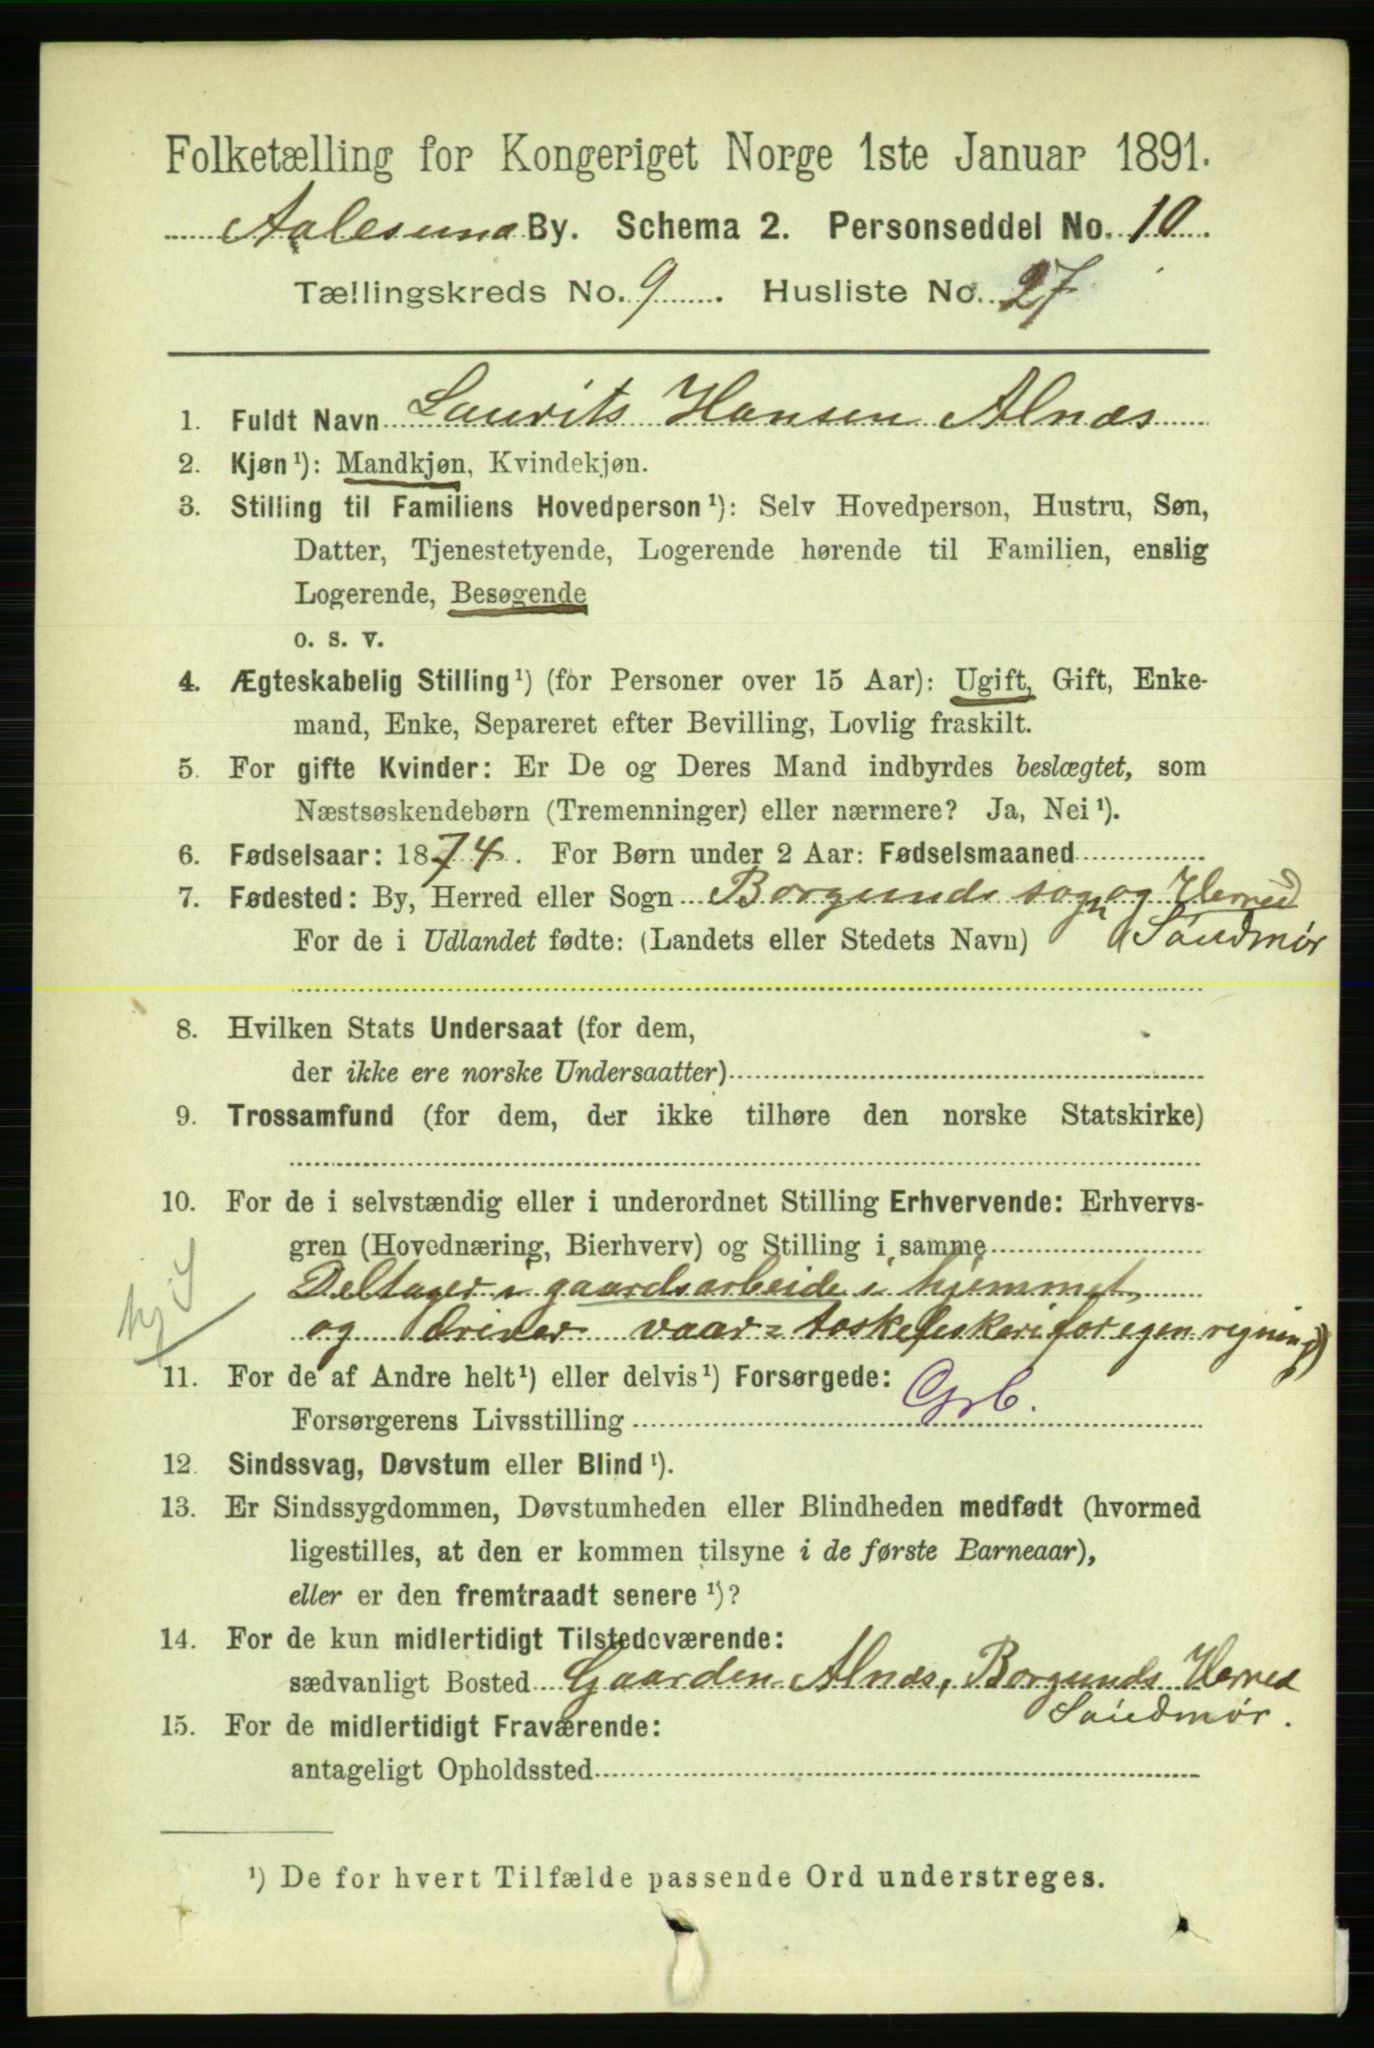 Folketælling for Kongeriget Norge 1ste Januar 1891.
Aalesund By. Schema 2. Personseddel No. 10.
Tællingskreds No. 9. Husliste No. 27
1. Fuldt Navn Laurits Hansen Alnæs
2. Kjøn ¹): Mandkjøn, Kvindekjøn.
3. Stilling til Familiens Hovedperson ¹): Selv Hovedperson, Hustru, Søn,
Datter, Tjenestetyende, Logerende hørende til Familien, enslig
Logerende, Besøgende
o. s. v.
4. Ægteskabelig Stilling ¹) (for Personer over 15 Aar): Ugift, Gift, Enke-
mand, Enke, Separeret efter Bevilling, Lovlig fraskilt.
5. For gifte Kvinder: Er De og Deres Mand indbyrdes beslægtet, som
Næstsøskendebørn (Tremenninger) eller nærmere? Ja, Nei ¹).
6. Fødselsaar: 1874. For Børn under 2 Aar: Fødselsmaaned
7. Fødested: By, Herred eller Sogn Borgunds sogn og Herred
For de i Udlandet fødte: (Landets eller Stedets Navn) Søndmør
8. Hvilken Stats Undersaat (for dem,
der ikke ere norske Undersaatter)
9. Trossamfund (for dem, der ikke tilhøre den norske Statskirke)
10. For de i selvstændig eller i underordnet Stilling Erhvervende: Erhvervs-
gren (Hovednæring, Bierhverv) og Stilling i samme
Deltager i gaardsarbeide i hjemmet,
og driver vaar=toskefiskeri for egen regning)
11. For de af Andre helt ¹) eller delvis ¹) Forsørgede:
Forsørgerens Livsstilling Grb.
12. Sindssvag, Døvstum eller Blind ¹).
13. Er Sindssygdommen, Døvstumheden eller Blindheden medfødt (hvormed
ligestilles, at den er kommen tilsyne i de første Barneaar),
eller er den fremtraadt senere ¹)?
14. For de kun midlertidigt Tilstedeværende:
sædvanligt Bosted Gaarden Alnæs, Borgunds Herred
Søndmør.
15. For de midlertidigt Fraværende:
antageligt Opholdssted
¹) De for hvert Tilfælde passende Ord understreges.